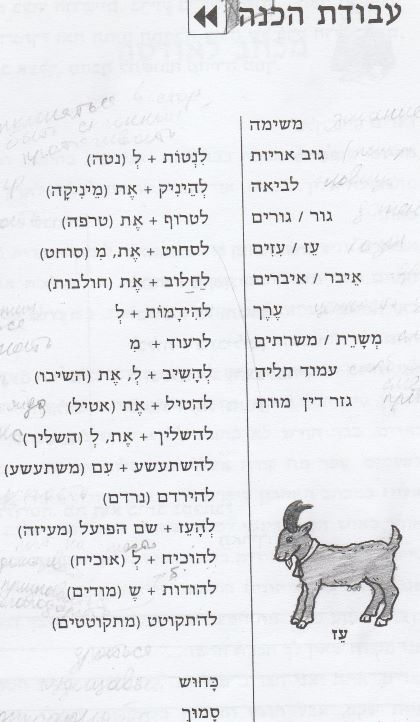 עבודת הכנה
משימה
גוב אריות
לביאה
גור / גורים
עֵז / עִזים
אֵיבר / איברים
עֶרֶך
מְשָׁרֵת / משרתים
עמוד תליה
גזר דין מוות
עֵז
לִנְטוֹת + לְ (נטה)
לְהֵינִיק + אֶת (מֵינִיקָה)
לטרוף + אֶת (טרפה)
לסחוט + אֶת, מִ (סוחט)
לַחֲלוֹב + אֶת (חולבות)
לְהִידָמוֹת + לְ
לרעוד + מִ
לְהָשִׁיב + לְ, אֶת (השיבו)
להטיל + אֶת (אטיל)
להשליך + אֶת, לְ (השליך)
להשתעשע + עִם (משתעשע)
להירדם (נרדם)
לְהָעֵז + שם הפועל (מעיזה)
להוכיח + לְ (אוכיח)
להודות + שֶ (מודים)
להתקוטט (מתקוטטים)
כָּחוּש
סָמוּך